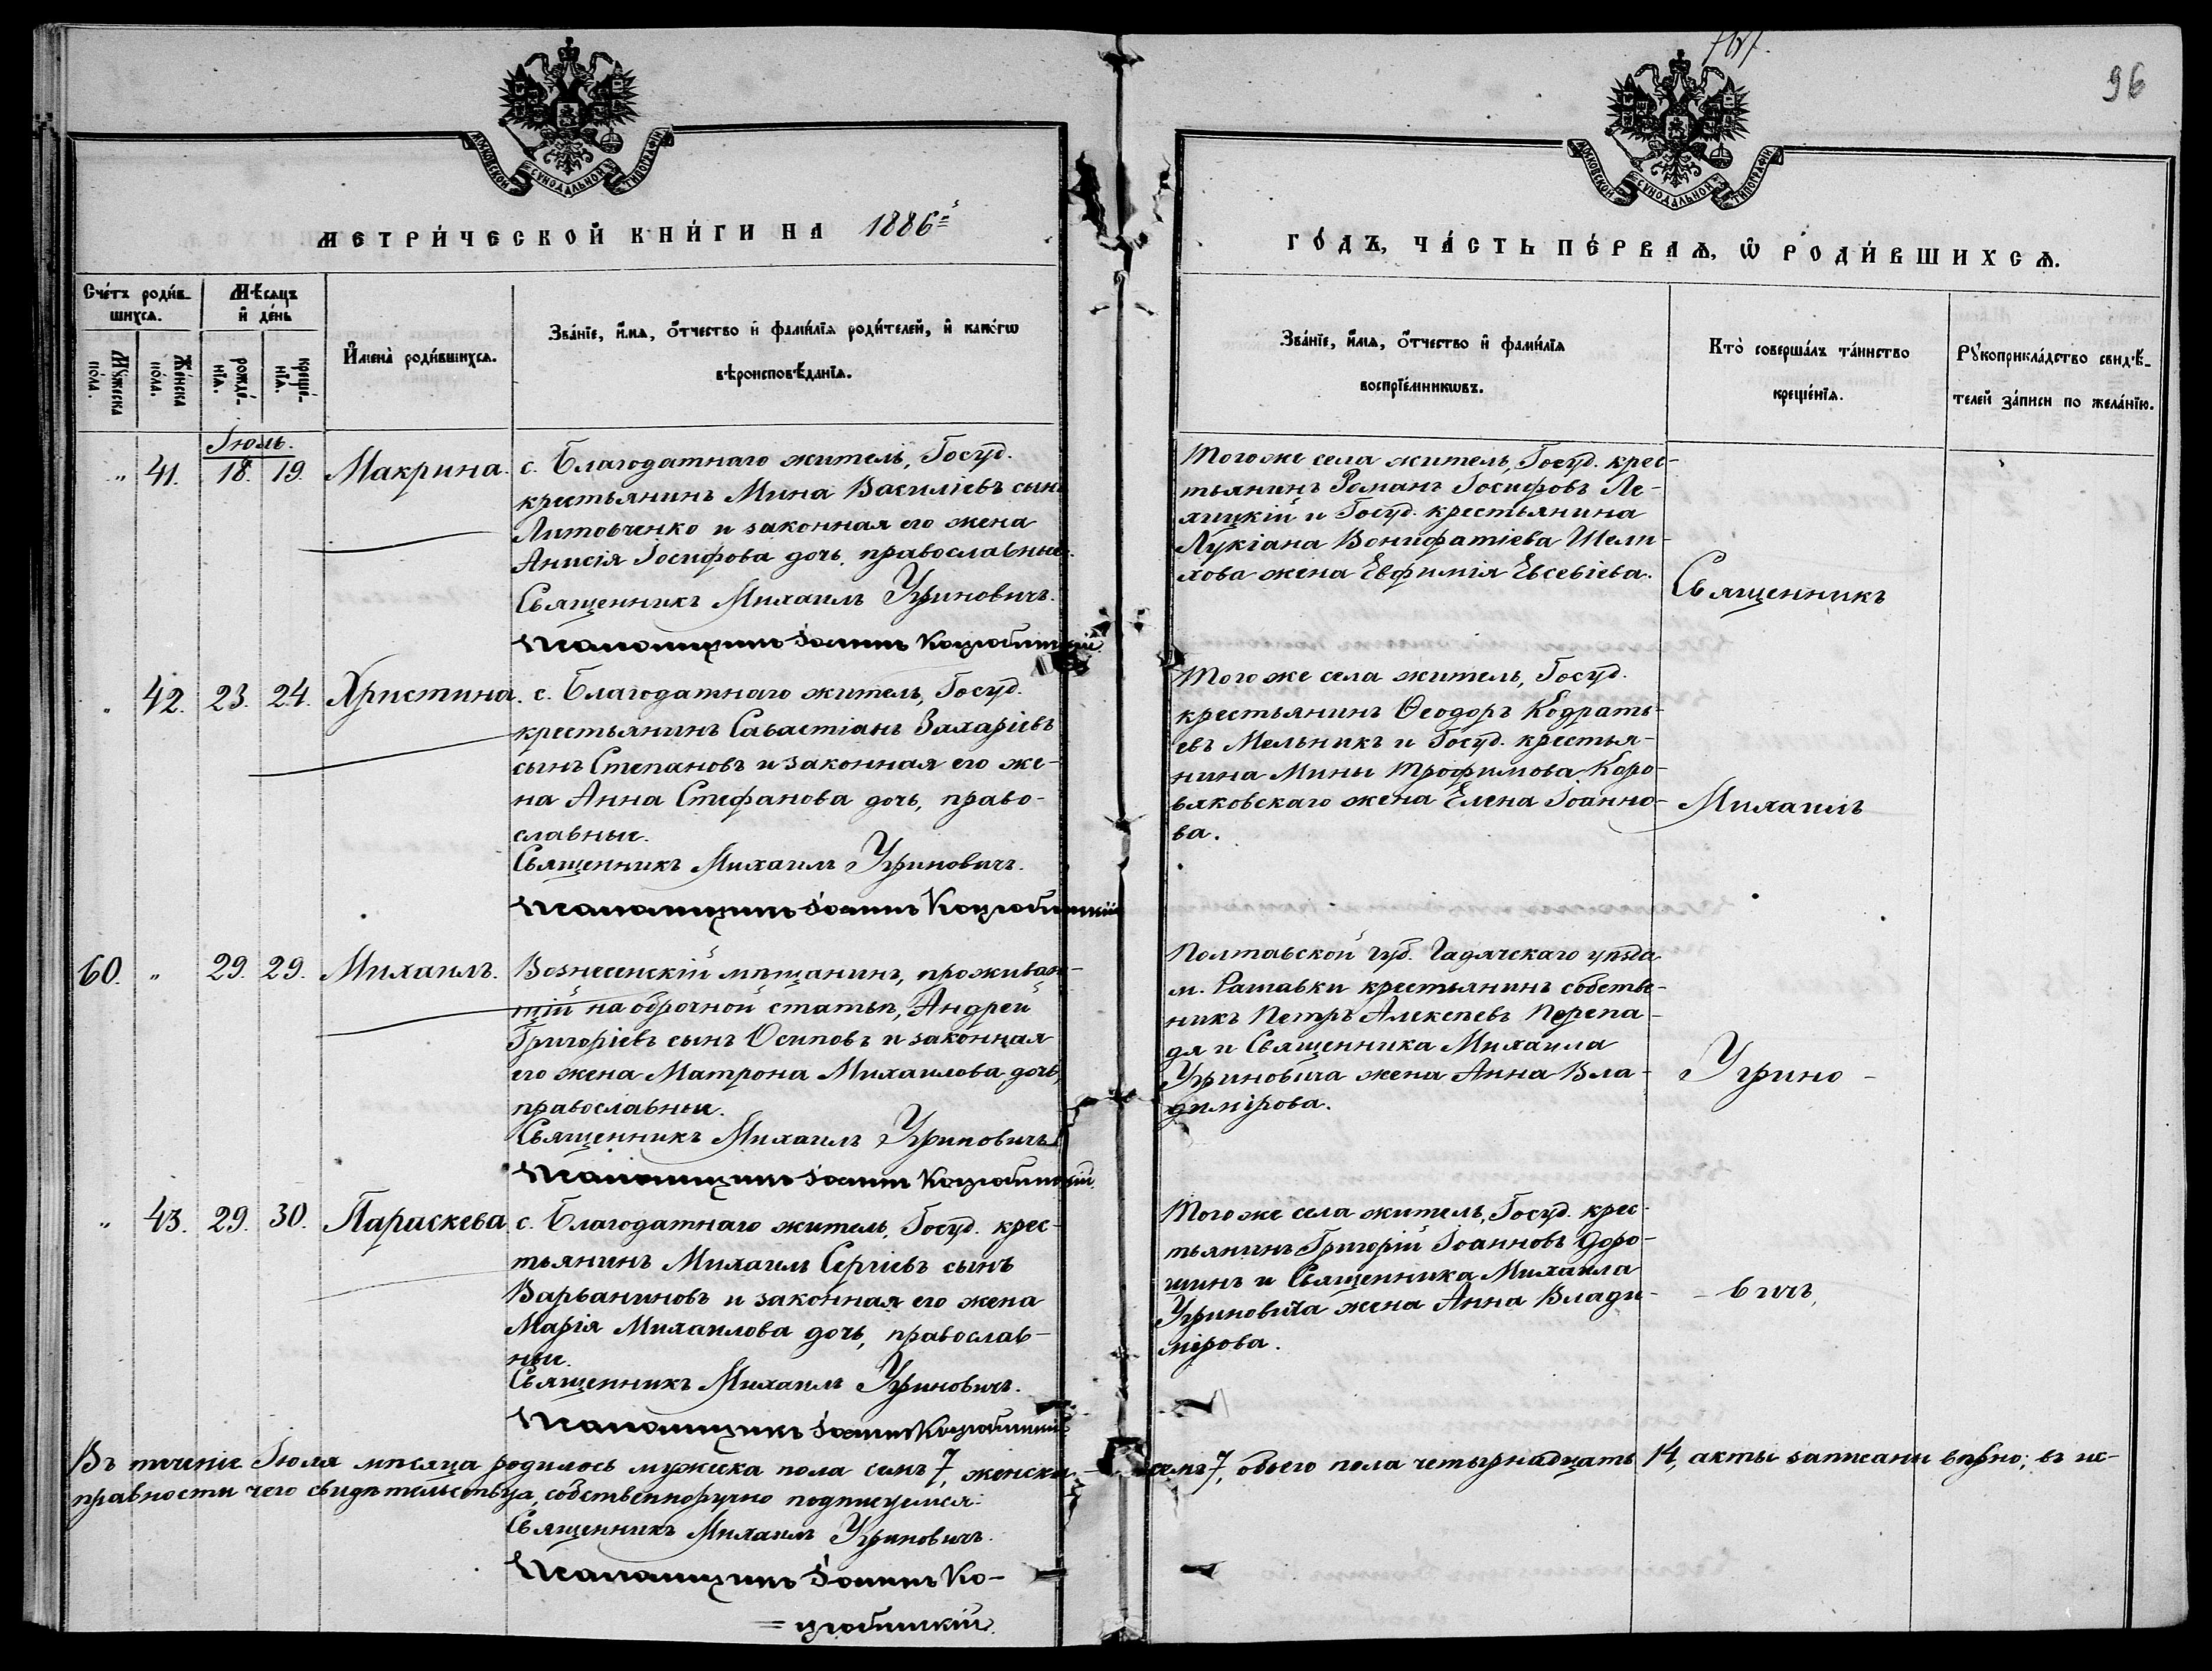 96
МОСКОВСКОЙ СУНОДАЛЬНОЙ ТИПОГРАФІИ
МОСКОВСКОЙ СУНОДАЛЬНОЙ ТИПОГРАФІИ
МЕТРИ́ЧЕСКОЙ КНИ́ГИ НА 1886й
ГО́ДЪ, ЧА́СТЬ ПЕ́РВАѦ, Ѡ҆ РОДИ́ВШИХСѦ.
Сче́тъ роди́в-
шихсѧ.
Мꙋ́жеска по́ла.
Же́нска по́ла.
Мѣ́сѧцъ
и҆ де́нь
рожде́-нїѧ.
креще́-нїѧ.
И҆мена̀ роди́вшихсѧ.
Зва́нїе, и҆́мѧ, ѻ҆́тчество и҆ фами́лїѧ роди́телей, и҆ како́гѡ
вѣроисповѣ́данїѧ.
Зва́нїе, и҆́мѧ, ѻ҆́тчество и҆ фами́лїѧ
воспрїе́мникѡвъ.
Кто̀ соверша́лъ та́инство
креще́нїѧ.
Рꙋкоприкла́дство свидѣ́-
телей за́писи по жела́нїю.
Іюль.
" 41. 18. 19. Макрина.
с. Благодатнаго житель, Госуд.
крестьянинъ Мина Василіевъ сынъ
Литовченко и законная его жена
Анисія Іосифова дочь, православные.
Священникъ Михаилъ Угриновичъ.
Псаломщикъ Іоаннъ Коцюбинскій.
Того же села житель, Госуд. крес-
тьянинъ Романъ Іосифовъ Ле-
хицкій и Госуд. крестьянина
Лукіана Вонифатіева Шели-
хова жена Евфимія Евсевіева.
Священникъ
" 42. 23. 24. Христина.
с. Благодатнаго житель, Госуд.
крестьянинъ Савастіанъ Захаріевъ
сынъ Степановъ и законная его же-
на Анна Стефанова дочь, право-
славные.
Священникъ Михаилъ Угриновичъ.
Псаломщикъ Іоаннъ Коцюбинскій
Того же села житель, Госуд.
крестьянинъ Ѳеодоръ Кодрать-
евъ Мельникъ и Госуд. крестья-
нина Мины Трофимова Коро-
вяковскаго жена Елена Іоанно-
ва.
Михаилъ
60. " 29. 29. Михаилъ.
Вознесенскій мѣщанинъ, проживаю-
щій на оброчной статьѣ, Андрей
Григоріевъ сынъ Осиповъ и законная
его жена Матрона Михаилова дочь,
православные.
Священникъ Михаилъ Угриновичъ
Псаломщикъ Іоаннъ Коцюбинскій.
Полтавской губ. Гадячскаго уѣзда
м. Рашавки крестьянинъ собстве-
никъ Петръ Алексѣевъ Перепа-
дя и Священника Михаила
Угриновича жена Анна Вла-
димірова.
Угрино-
" 43. 29. 30. Параскева
с. Благодатнаго житель, Госуд. крес-
тьянинъ Михаилъ Сергіевъ сынъ
Варваниновъ и законная его жена
Марія Михаилова дочь, православ-
ные.
Священникъ Михаилъ Угриновичъ.
Псаломщикъ Іоаннъ Коцюбинскій
Того же села житель, Госуд. крес-
тьянинъ Григорій Іоанновъ Доро-
шинъ и Священника Михаила
Угриновича жена Анна Влади-
мірова.
-вичъ,
Въ теченіе Іюля мѣсяца родилось мужеска пола семь 7, женска - семь 7, обоего пола четырнадцать 14, акты записаны вѣрно; въ ис-
правности чего свидѣтельствуя, собственноручно подписуемся:
Священникъ Михаилъ Угриновичъ.
Псаломщикъ Іоаннъ Ко-
=цюбинскій.